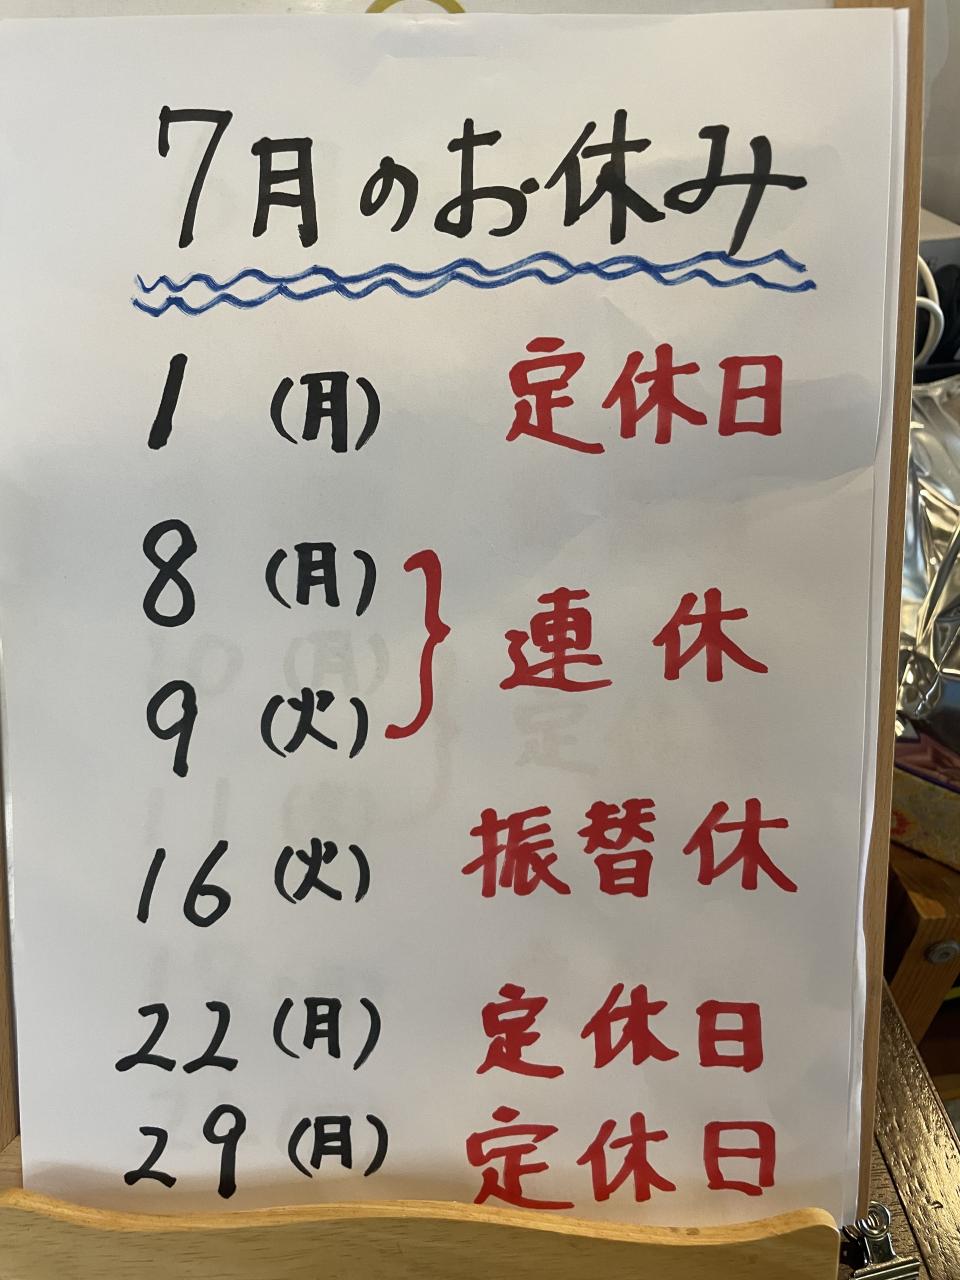 7月のお休み
1 (月) 定休日
8 (月)
9 (火) } 連休
16 (火) 振替休
22 (月) 定休日
29 (月) 定休日